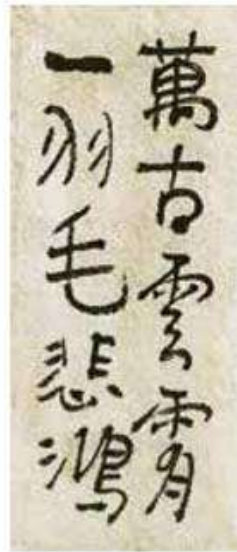 萬古雲霄
一羽毛悲鴻